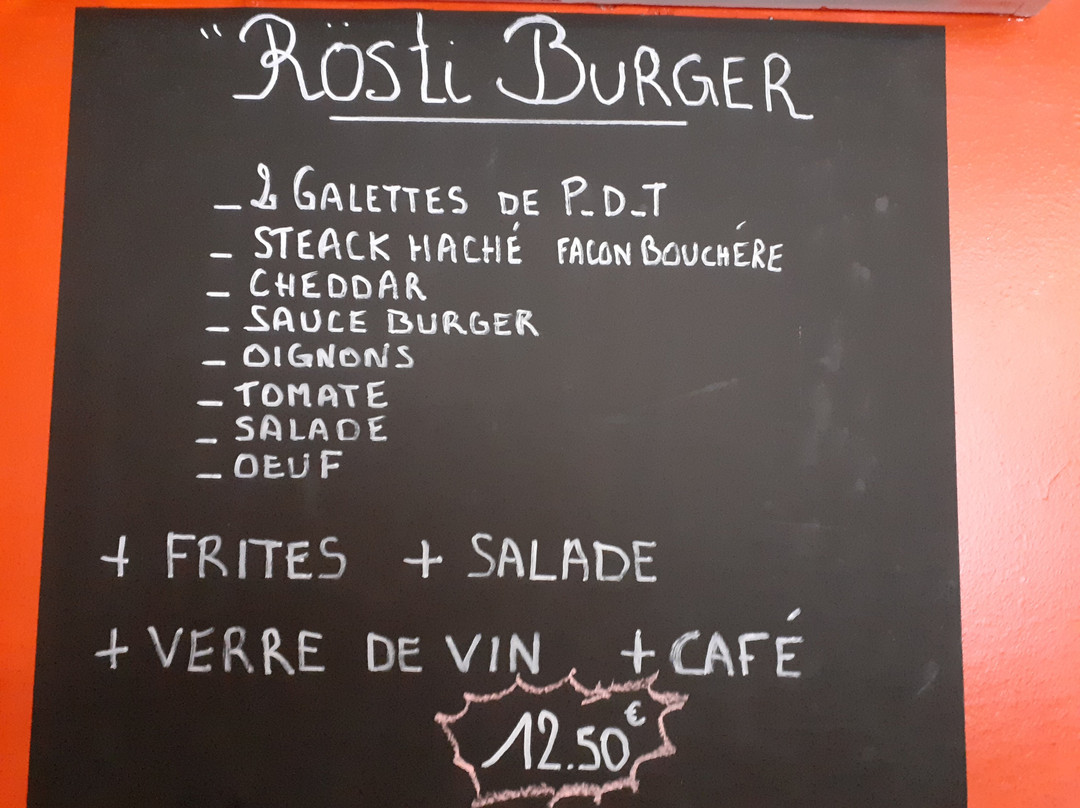 " Rösti BURGER
_ 2 GALETTES DE P_D_T
_ STEACK HACHÉ FACON BOUCHÉRE
_ CHEDDAR
_ SAUCE BURGER
_ OIGNONS
_ TOMATE
_ SALADE
_ OEUF
+ FRITES + SALADE
+ VERRE DE VIN + CAFÉ
12.50€